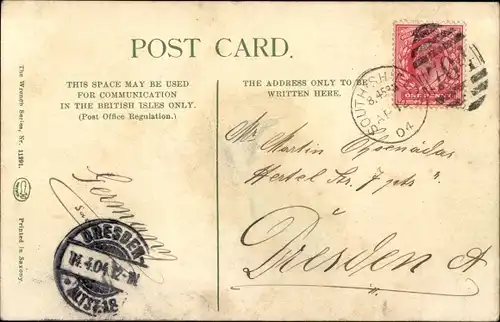 POST CARD.
THIS SPACE MAY BE USED
FOR COMMUNICATION
IN THE BRITISH ISLES ONLY.
(Post Office Regulation.)
THE ADDRESS ONLY TO BE
WRITTEN HERE.
The Wrench Series, Nr. 11991.
Printed in Saxony.
ONE PENNY
SOUTH SH
04
Mr Martin
Hertel Str. 7 ptr
Dresden A
Germany
DRESDEN
11.4.04.
ALTST. 18